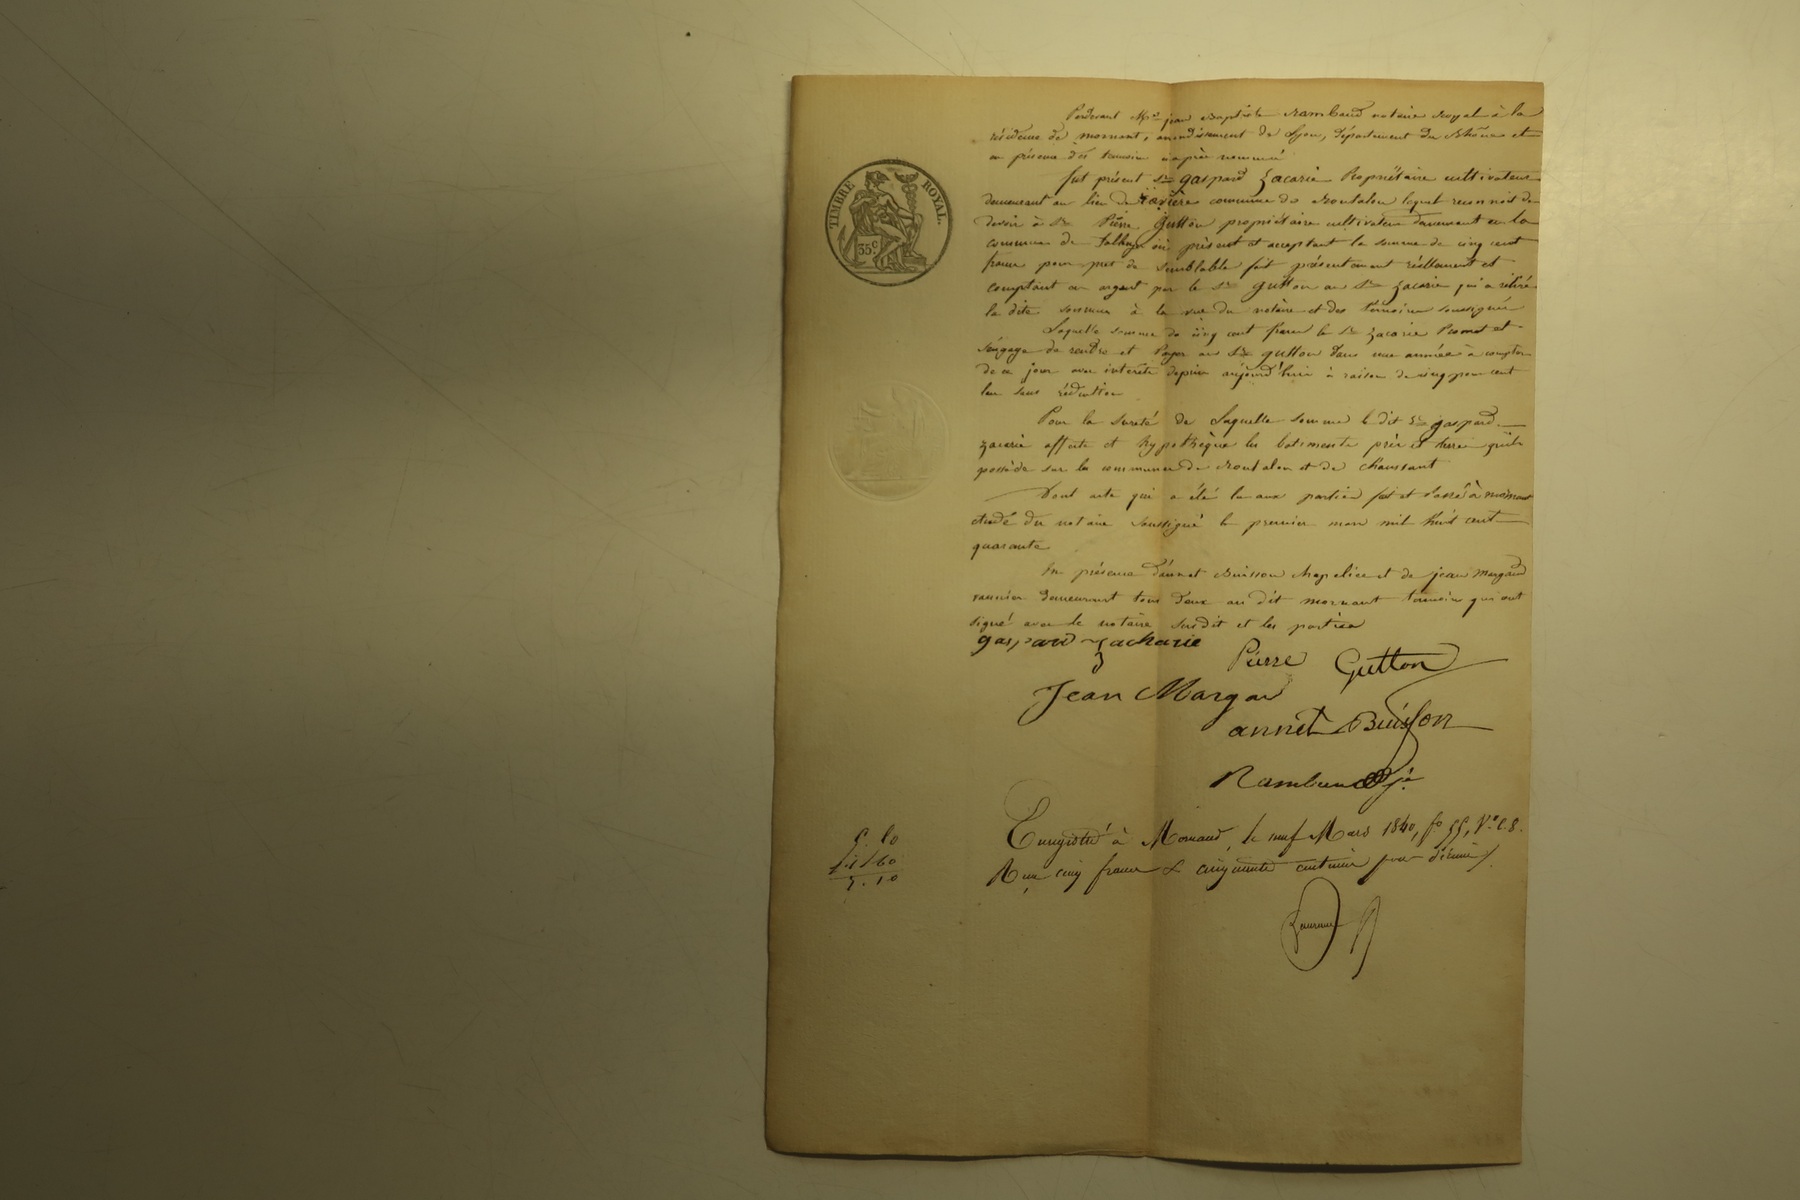 TIMBRE ROYAL
35 c
Pardevant Me jean Baptiste Rambaud notaire Royal à la
résidence de mornant, arrondissement de Lyon, département du Rhône et
en présence des temoins ci après nommé
fut présent Sr gaspard Zacarie Propriétaire cultivateur
demeurant au lieu de ravière commune de Rontalon lequel reconnoit de
devoir à Sr Pierre Gutton propriétaire cultivateur demeurant en la
commune de ici présent et acceptant la somme de cinq cent
francs pour pret de semblable fait présentement réellement et
comptant en argent par le Sr Gutton au Sr Zacarie qui a retiré
la dite somme à la vue du notaire et des témoins soussignés
Laquelle somme de cinq cent francs le Sr Zacarie Promet et
s'engage de rendre et Payer au Sr gutton dans une année à compter
de ce jour avec intérêts depuis aujourd'hui à raison de cinq pour cent
lan sans réduction
Pour la sureté de Laquelle somme le dit Sr gaspard
Zacarie affecte et hypothèque les batiments près et terre qu'il
possède sur la commune de Rontalon et de Chaussant
Dont acte qui a été lu aux parties fait et Passé à mornant
étude du notaire soussigné le premier mars mil huit cent
quarante
En présence d'annet Buisson chapelier et de jean margand
demeurant tous deux au dit mornant temoins qui ont
signé avec le notaire susdit et les parties
gaspard Zacharie
Pierre Gutton
Jean Margan
annet Buisson
Rambaud
Enregistré à Mornand, le neuf Mars 1840, fo 55, Vo c. 8.
Reçu cinq francs & cinquante centimes pour décime